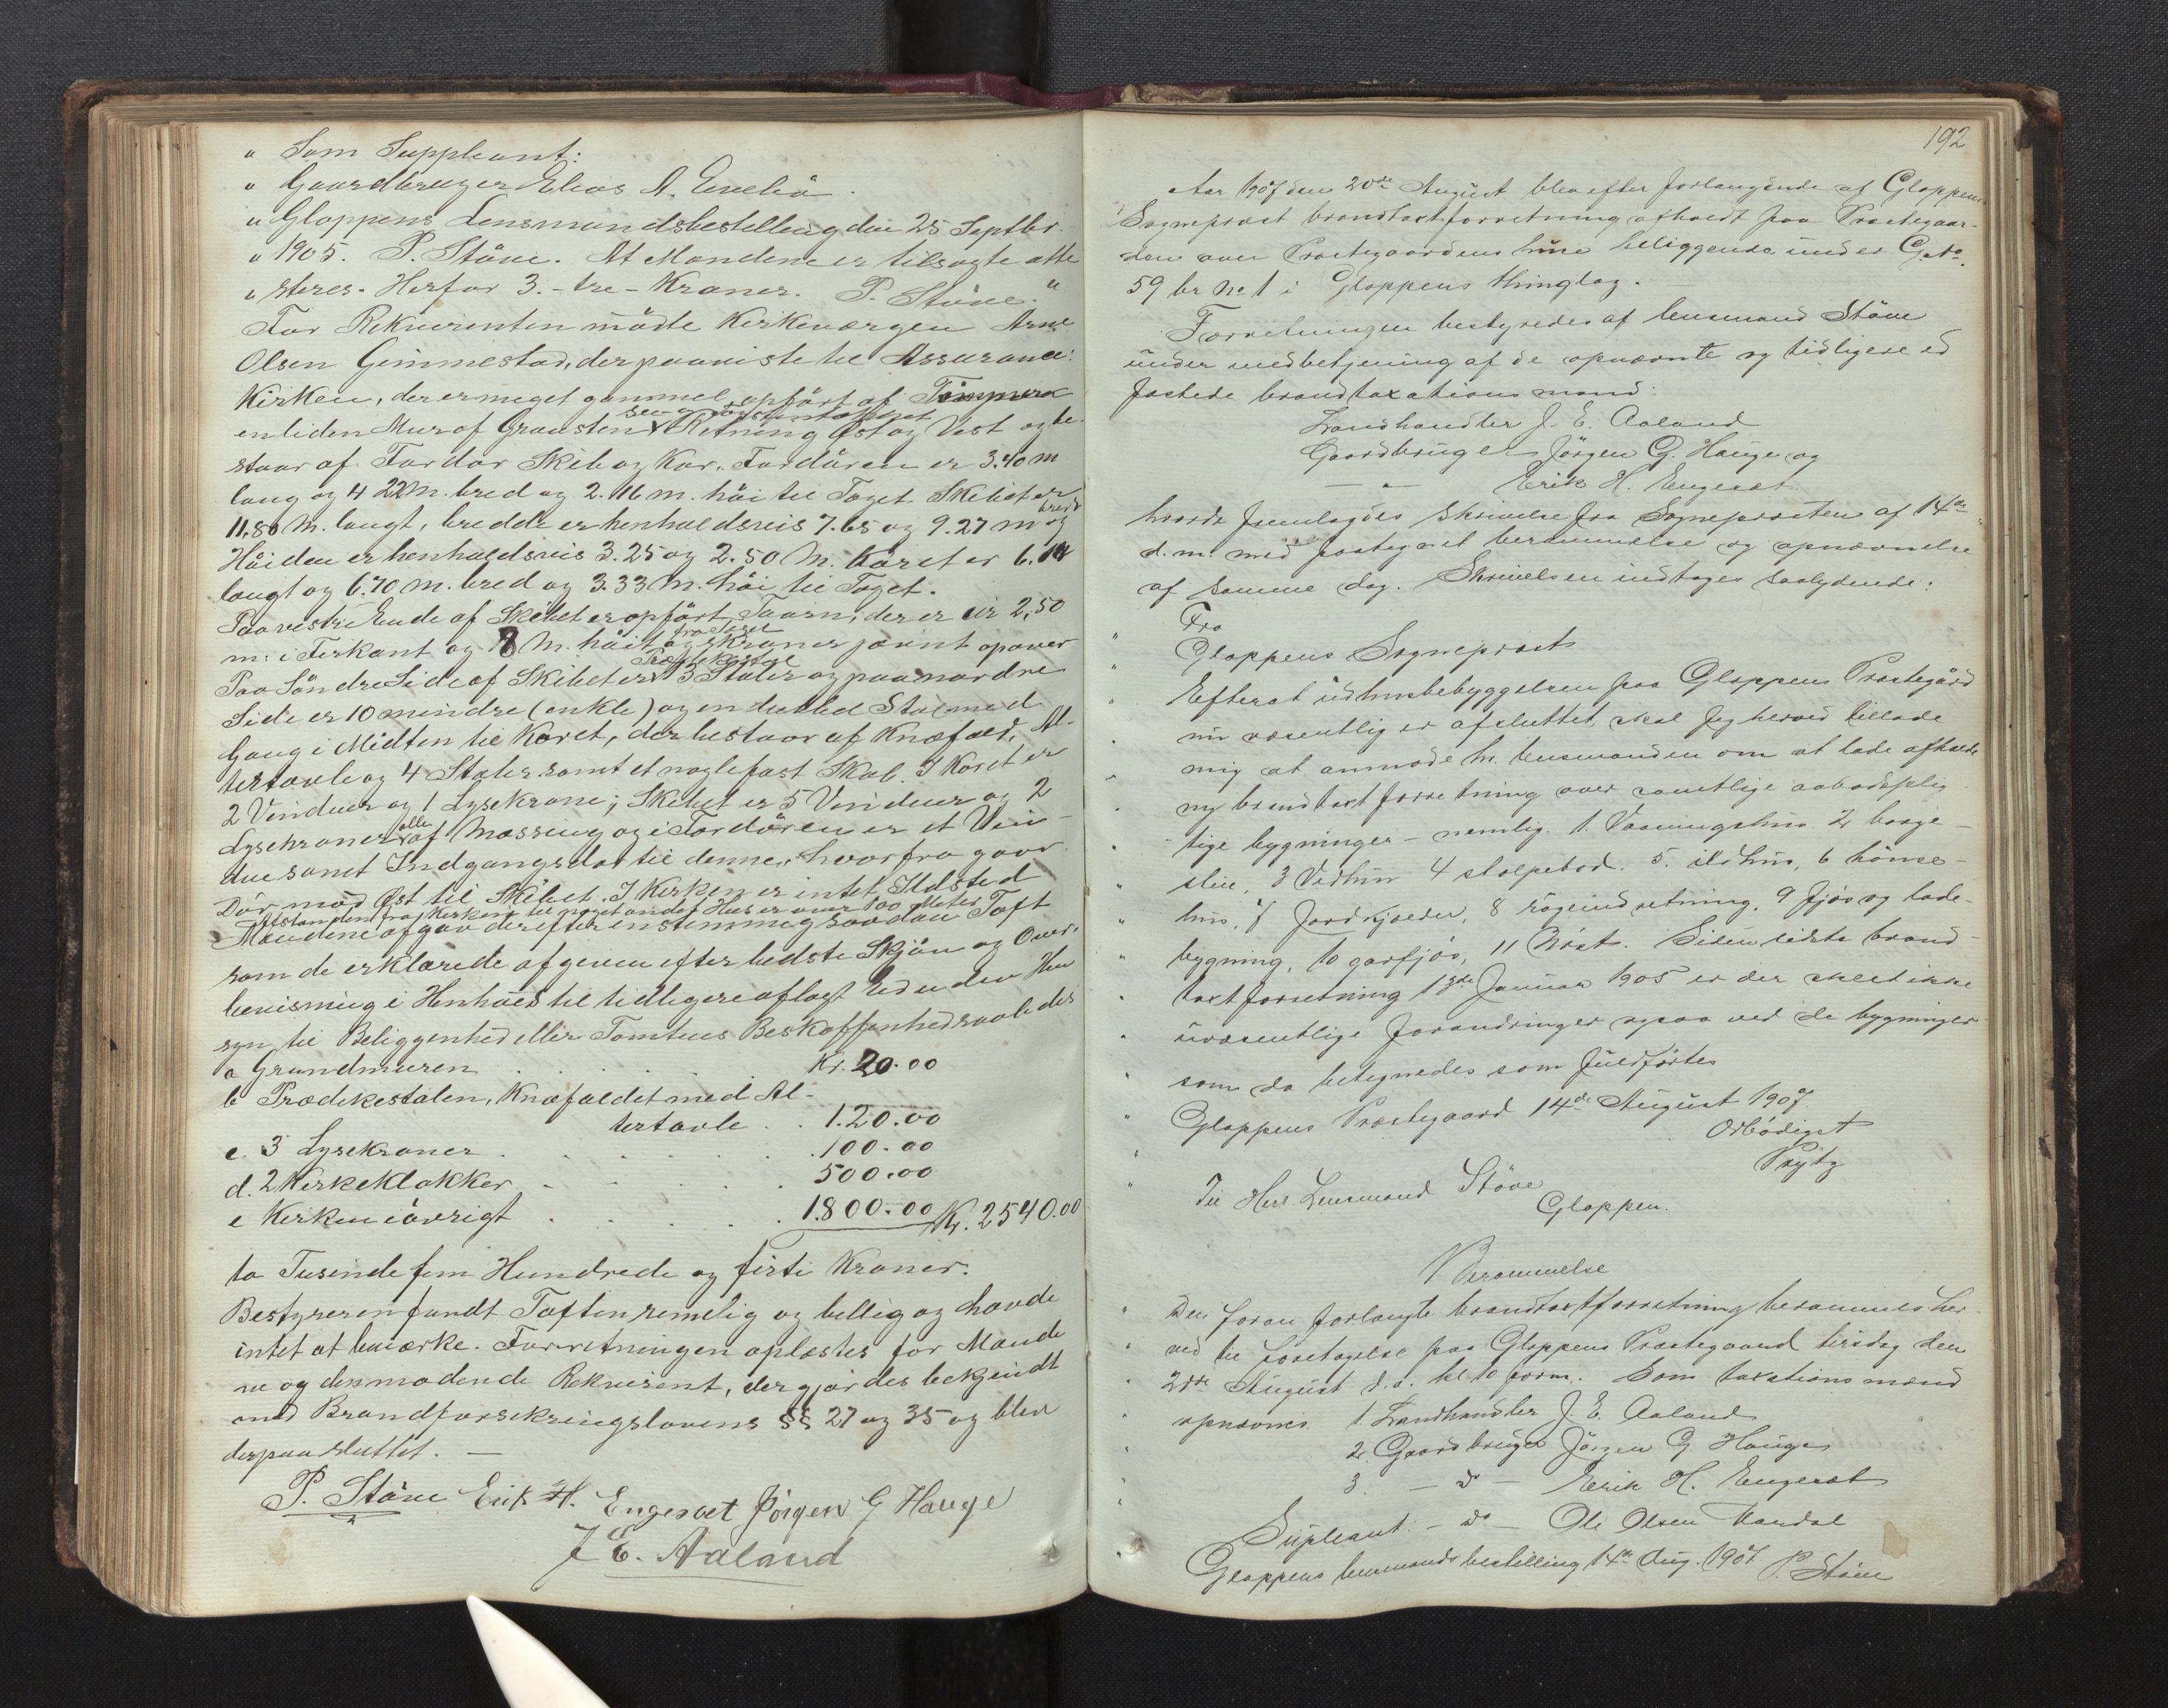 " Som Suppleant:
" Gaardbruger Elias A. Emeliö
" Gloppens Lensmandsbestilling den 25 Septbr.
" 1905. P. Støve. At Mændene er tilsagte atte
" steres. Herfor 3.- tre - Kroner. P. Støve."
For Rekvirenten mödte Kirkeværgen Arne
Olsen Gimmestad, der paaviste til Assurance:
Kirken, der er meget gammel, opfört af Tömmer
en liden Mur af Graasten Retning Öst og Vest og be-
staar af Fordör Skib og Kor. Fordören er 3.40 m
lang og 4 22 M. bred og 2.16 m. höi til Taget. Skibet er
11,80 M. langt, bredde er henholdsvis 7.65 og 9.27 m og
Höiden er henholdsvis 3.25 og 2.50 M. Koret er 6.
langt og 6.70 m. bred og 3.33 M. höi til Taget.
Paa vestre Ende af Skibet er opfört Taarn, der er 2,50
m: i Firkant og 8 M. höit fra Taget og
Paa Söndre Side af Skibet er Prækestol 3 Stoler og paa nordre
Side er 10 mindre (enkle) og en dobbel Stol med
Gang i Midten til Koret, der bestaar af Knæfald, Al-
tertavle og 4 Stoler samt et naglefast Skab. I Koret er
2 Vinduer og 1 Lysekrone; Skibet er 5 Vinduer og 2
Lysekroner alle af Messing og i Fordören er et Vin-
due samt Indgangsdör til denne, hvorfra gaar
Dör mod Öst til Skibet. I Kirken er intet Ildsted
Afstanden fra Kirken til noget andet Hus er over 100 Meter
Mændene afgav derefter enstemmig saadan Taxt
som de erklærede afgiven efter bedste Skjön og Over-
bevisning i Henhold til tidligere aflagt Ed uden Hen
syn til Beliggenhed eller Tomtens Beskaffenhed saaledes
a Grundmuren . . . . . Kr. 20.00
b Prædikestolen, Knæfaldet med Al-
tertavle . . 120.00
c. 3 Lysekroner . . . . . . 100.00
d. 2 Kirkeklokker . . . . . 500.00
e Kirken iövrigt . . . . . 1800.00 Kr. 2540.00
to Tusinde fem Hundrede og firti Kroner.
Bestyreren fandt Taxten rimelig og billig og havde
intet at bemærke. Forretningen oplæstes for Mænde
ne og den mødende Rekvirent, der gjordes bekjendt
med Brandforsikringslovens §§ 27 og 35 og blev
derpaa sluttet. —
P. Støve Erik H. Engeset Jörgen G Hauge
J E. Aaland
192
Aar 1907 den 20de August blev efter forlangende af Gloppens
Sogneprest brandtaxtforretning afholdt paa Præstegaar-
den over Præstegaardens huse beliggende under G. No.
59 br No 1 i Gloppens thinglag.
Forretningen bestyredes af lensmand Støve
under medbetjening af de opnævnte og tidligere ed
fæstede brandtaxationsmænd:
Landhandler J. E. Aaland
Gaardbruger Jörgen G. Hauge og
— " — Erik H. Engeset
hvorde fremlagdes skrivelse fra Sognepresten af 14de
d.m. med paategnet berammelse og opnævnelse
af samme dag. Skrivelsen indtages saalydende:
" Fra
" Gloppens Sogneprest
" Efterat udhusbebyggelsen paa Gloppens Præstegård
" nu væsentlig er afsluttet, skal jeg herved tillade
" mig at anmode hr. lensmanden om at lade afholde
" ny brandtaxtforretning over samtlige aabodsplig
" tige bygninger - nemlig. 1. Vaaningshus. 2 borge-
" stue, 3 Vedhus 4 stolpebod. 5. ildhus, 6 hönse-
" hus, 7 Jordkjelder, 8 rögeindretning, 9 fjös og lade-
" bygning, 10 garfjös, 11 Nöst. Siden sidste brand
" taxtforretning 13de Januar 1905 er der skeet ikke
" uvæsentlige forandringer ogsaa ved de bygninger
" som da betegnedes som fuldförtes
" Gloppens Præstegaard 14de August 1907.
Ærbödigst
" Prytz
" Til Herr Lensmand Støve
Gloppen.
Berammelse
" Den foran forlangte brandtaxtforretning berammes her-
" ved til foretagelse paa Gloppens Præstegaard tirsdag den
" 20de August d.a. kl 10 form. Som taxationsmænd
" opnævnes. 1. Landhandler J. E. Aaland
" 2. Gaardbruger Jörgen G. Hauge
" 3. — do — Erik H. Engeset
Supleant: — do — Ole Olsen Mandal
" Gloppens lensmandsbestilling 14de Aug. 1907 P. Støve